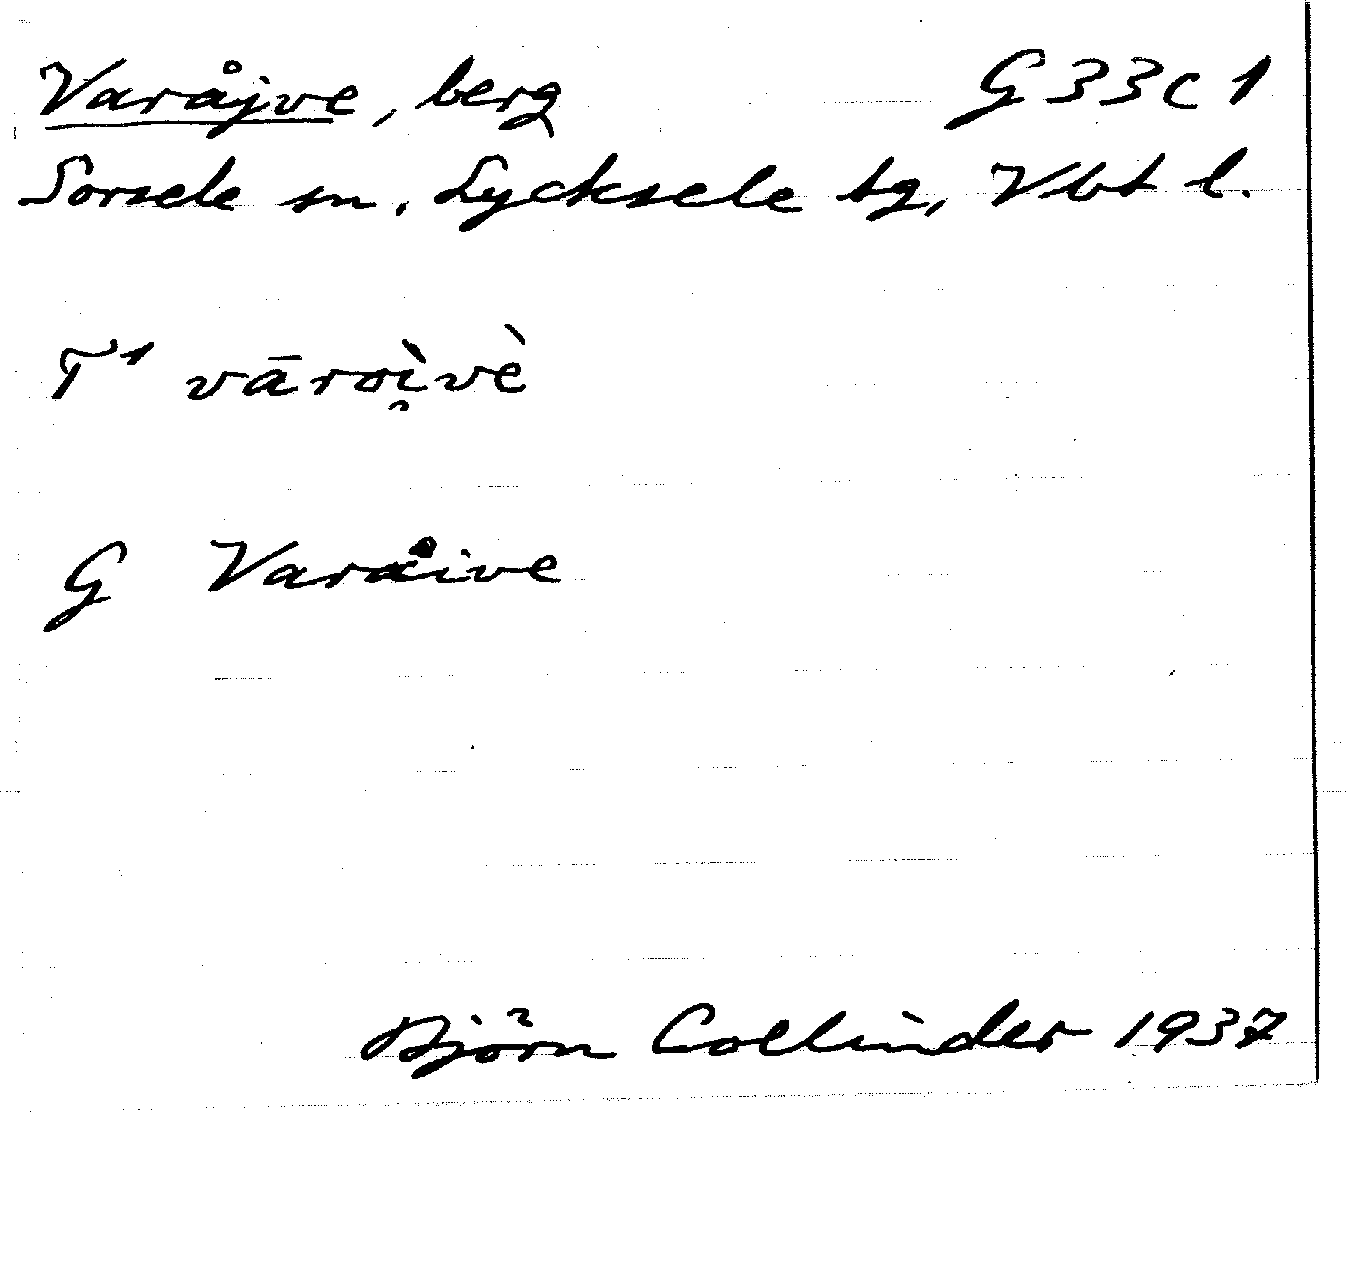 Varåjve, berg G 33 c 1
Sorsele sn, Lycksele tg, Vbt l.
T¹ vāroì̯vè
G Varåive
Björn Collinder 1937